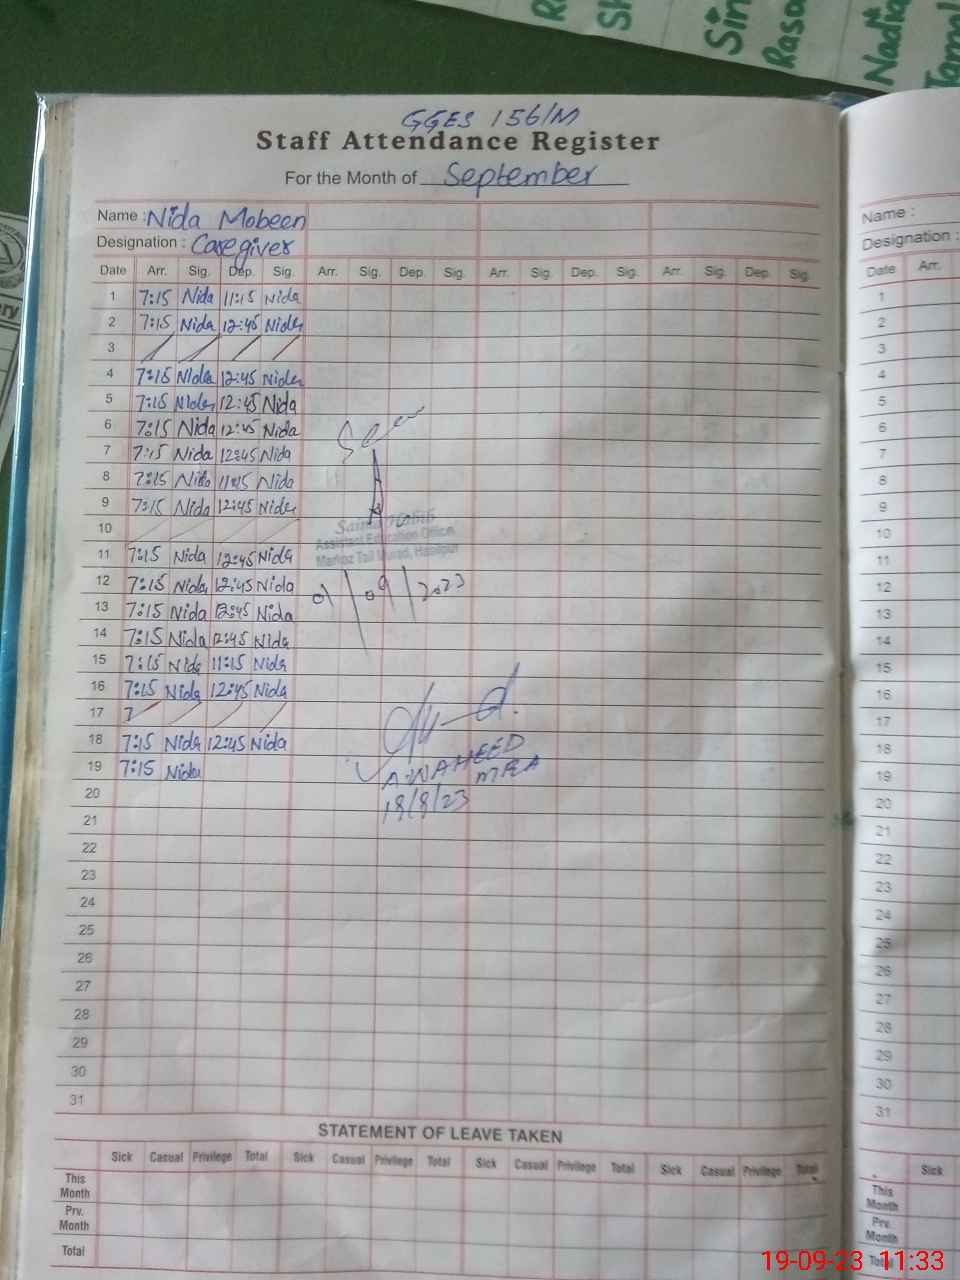 GGES 156/M
Staff Attendance Register
For the Month of September
Name : Nida Mobeen
Designation : Caregiver
Date Arr. Sig. Dep. Sig. Arr. Sig. Dep. Sig. Arr. Sig. Dep. Sig. Arr. Sig. Dep. Sig.
1 7:15 Nida 11:15 Nida
2 7:15 Nida 12:45 Nida
3
4 7:15 Nida 12:45 Nida
5 7:15 Nida 12:45 Nida
6 7:15 Nida 12:45 Nida
7 7:15 Nida 12:45 Nida
8 7:15 Nida 11:15 Nida
9 7:15 Nida 12:45 Nida
10
11 7:15 Nida 12:45 Nida
12 7:15 Nida 12:45 Nida
13 7:15 Nida 12:45 Nida
14 7:15 Nida 12:45 Nida
15 7:15 Nida 11:15 Nida
16 7:15 Nida 12:45 Nida
17 7
18 7:15 Nida 12:45 Nida
19 7:15 Nida
20
21
22
23
24
25
26
27
28
29
30
31
Seen
Saima Habib
Assistant Education Officer
Markaz Tail Murad, Hasilpur
01/09/2023
A.WAHEED
MEA
18/8/23
STATEMENT OF LEAVE TAKEN
Sick Casual Privilege Total Sick Casual Privilege Total Sick Casual Privilege Total Sick Casual Privilege Total
This Month
Prv. Month
Total
Name :
Designation :
Date Arr.
1
2
3
4
5
6
7
8
9
10
11
12
13
14
15
16
17
18
19
20
21
22
23
24
25
26
27
28
29
30
31
Sick
This Month
Prv. Month
Total
Sin
Rasa
Nadia
19-09-23 11:33